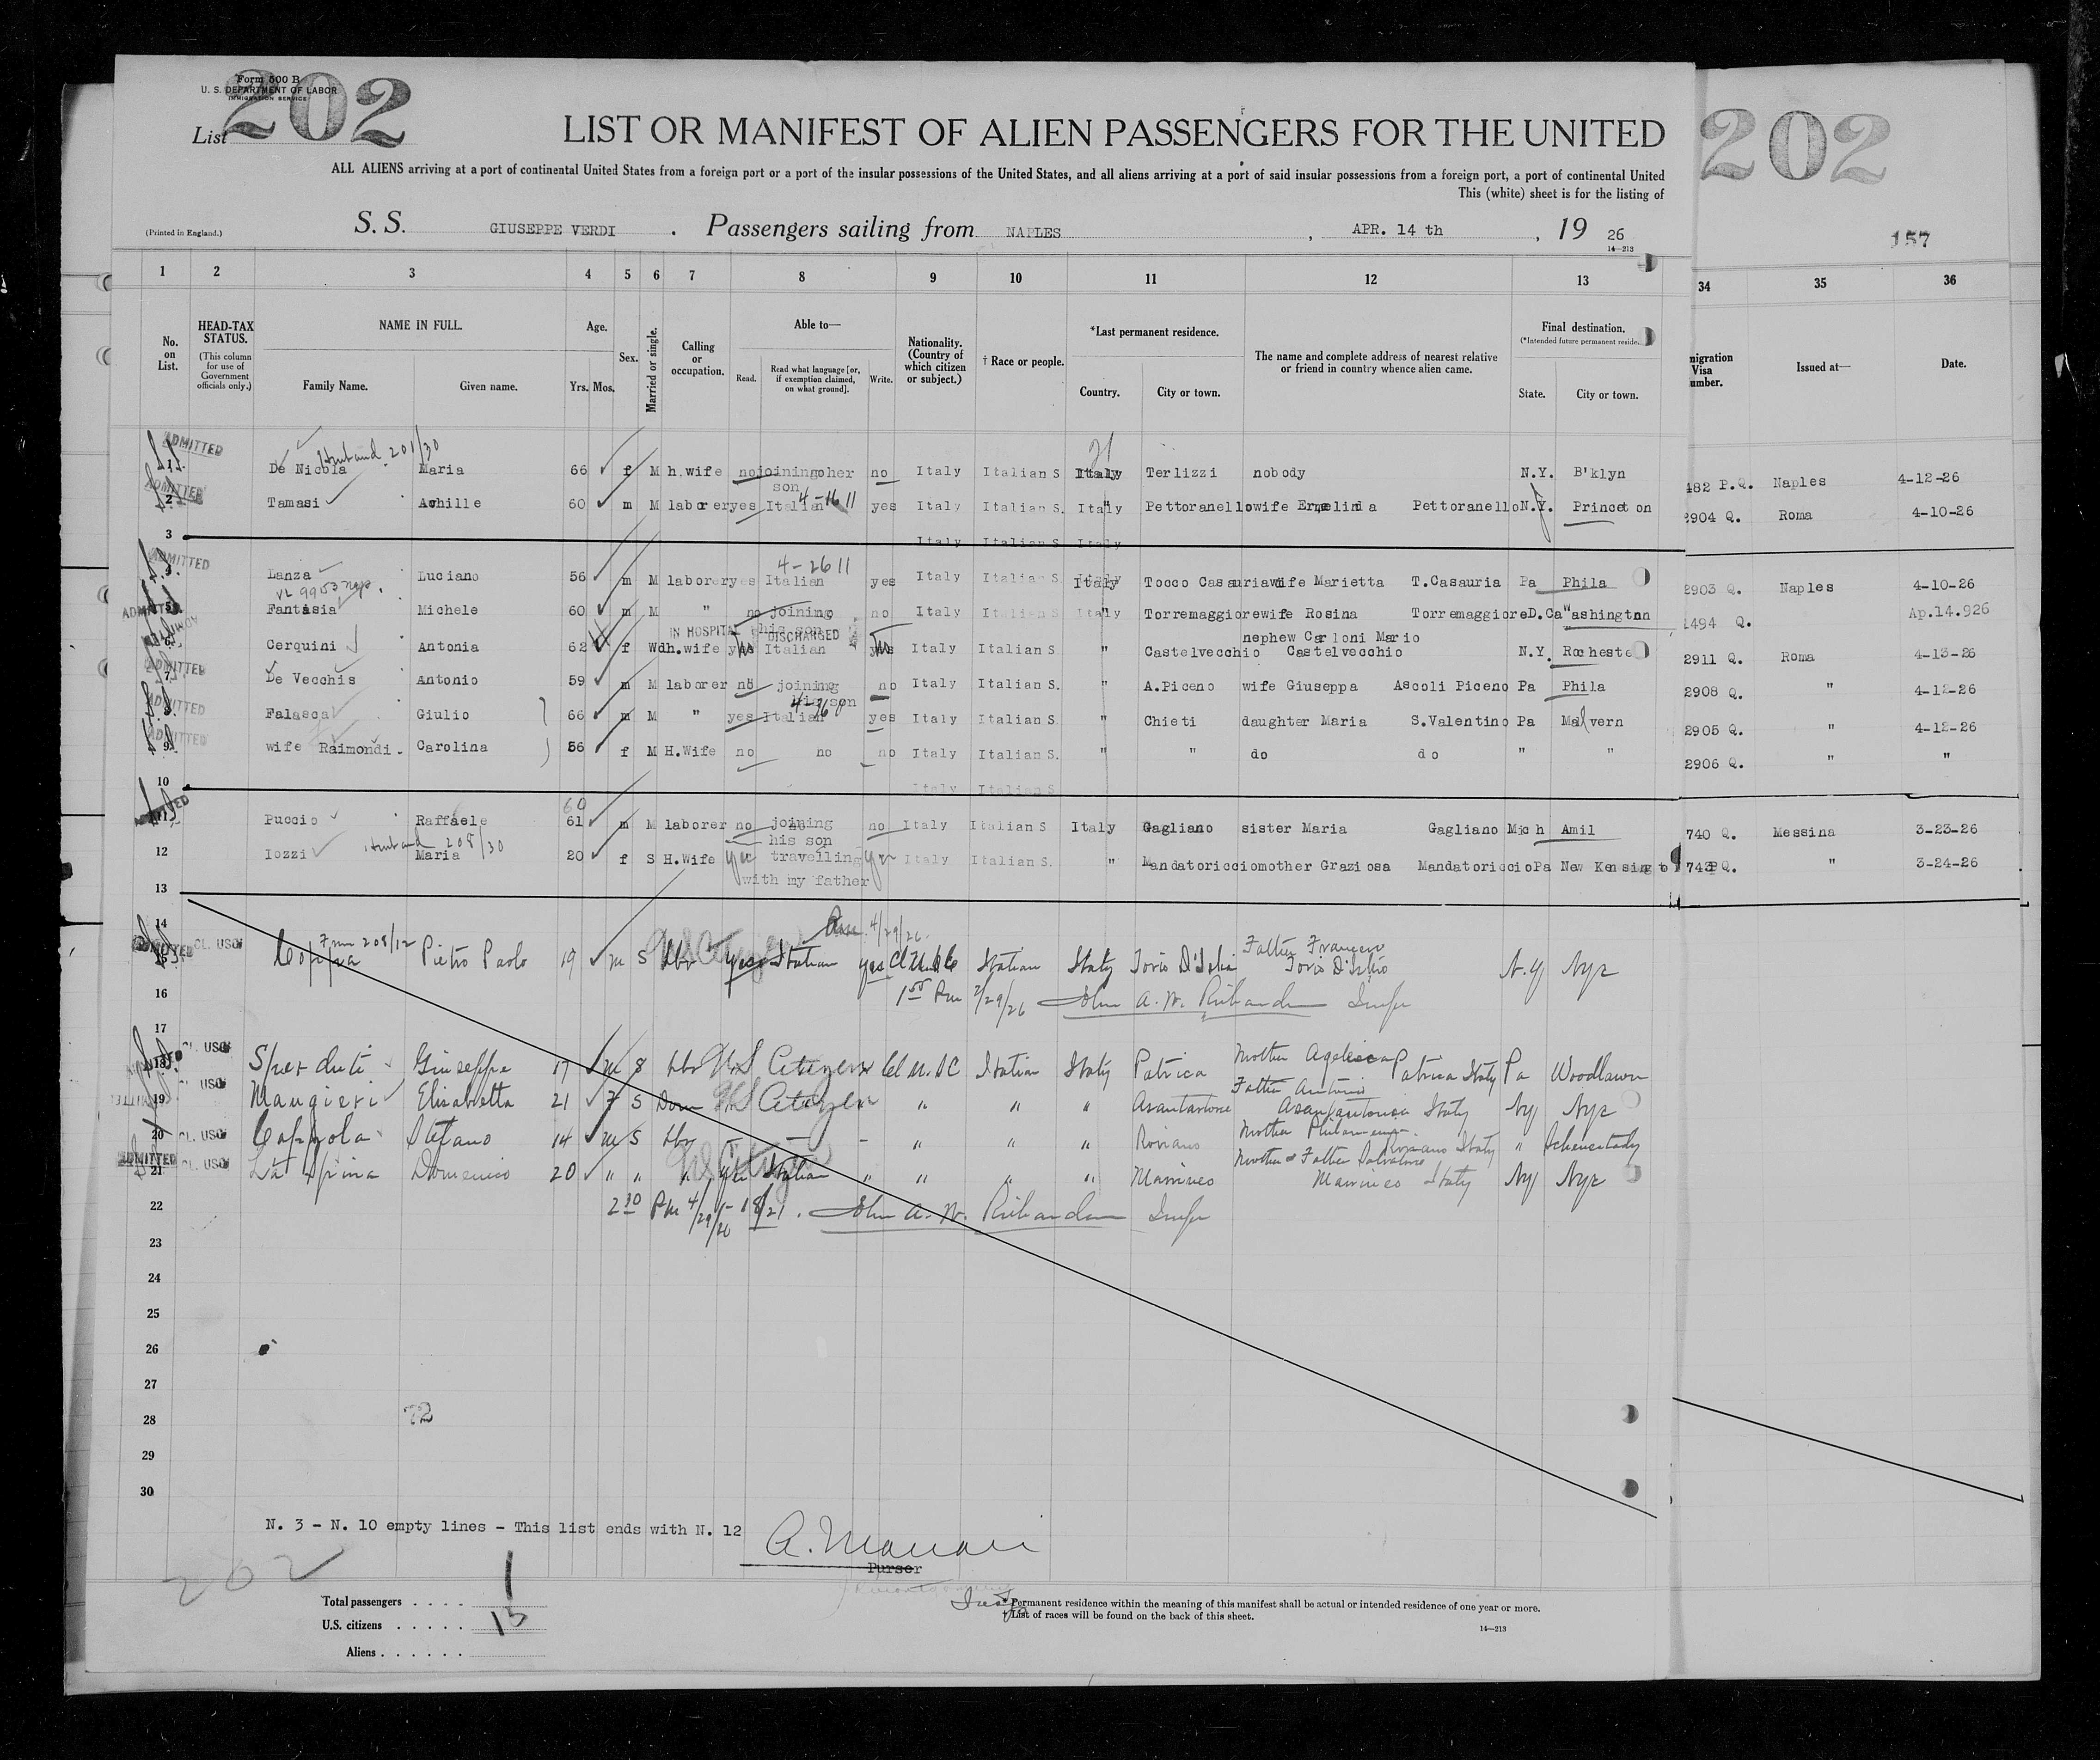 Form 500 B
U. S. DEPARTMENT OF LABOR
IMMIGRATION SERVICE
List 202
202
LIST OR MANIFEST OF ALIEN PASSENGERS FOR THE UNITED
ALL ALIENS arriving at a port of continental United States from a foreign port or a port of the insular possessions of the United States, and all aliens arriving at a port of said insular possessions from a foreign port, a port of continental United
This (white) sheet is for the listing of
(Printed in England.)
S. S. GIUSEPPE VERDI . Passengers sailing from NAPLES , APR. 14 th , 19 26
14—213
157
1 2 3 4 5 6 7 8 9 10 11 12 13 34 35 36
No. on List.
HEAD-TAX STATUS.
(This column for use of Government officials only.)
NAME IN FULL.
Family Name. Given name.
Age.
Yrs. Mos.
Sex.
Married or single.
Calling or occupation.
Able to—
Read. Read what language [or, if exemption claimed, on what ground]. Write.
Nationality. (Country of which citizen or subject.)
† Race or people.
*Last permanent residence.
Country. City or town.
The name and complete address of nearest relative or friend in country whence alien came.
Final destination.
(*Intended future permanent reside
State. City or town.
migration Visa umber.
Issued at—
Date.
ADMITTED Husband 201/30
1 De Nicola Maria 66 f M h.wife no joining her son no Italy Italian S Italy Terlizzi nobody N.Y. B'klyn 482 P.Q. Naples 4-12-26
ADMITTED 4-16 11
2 Tamasi Achille 60 m M laborer yes Italian yes Italy Italian S. Italy Pettoranello wife Ermelinda Pettoranello N.Y. Princeton 2904 Q. Roma 4-10-26
3 Italy Italian S Italy
ADMITTED 4-26 11
4 Lanza Luciano 56 m M laborer yes Italian yes Italy Italian S. Italy Tocco Casauria wife Marietta T.Casauria Pa Phila 2903 Q. Naples 4-10-26
ADMITTED
5 Fantasia Michele 60 m M " no joining his son no Italy Italian S Italy Torremaggiore wife Rosina Torremaggiore D.Ca Washington 1494 Q. Ap.14.926
IN HOSPITAL DISCHARGED
nephew Carloni Mario
6 Cerquini Antonia 62 f Wd h.wife yes Italian yes Italy Italian S. " Castelvecchio Castelvecchio N.Y. Rocheste 2911 Q. Roma 4-13-26
ADMITTED
7 De Vecchis Antonio 59 m M laborer no joining his son no Italy Italian S. " A.Piceno wife Giuseppa Ascoli Piceno Pa Phila 2908 Q. " 4-12-26
ADMITTED
8 Falasca Giulio 66 m M " yes Italian yes Italy Italian S. " Chieti daughter Maria S.Valentino Pa Malvern 2905 Q. " 4-12-26
ADMITTED
9 wife Raimondi Carolina 56 f M H.Wife no no no Italy Italian S. " " do do " " 2906 Q. " "
10 Italy Italian S
60
11 Puccio Raffaele 61 m M laborer no joining his son no Italy Italian S Italy Gagliano sister Maria Gagliano Mich Amil 740 Q. Messina 3-23-26
Husband 208/30
12 Iozzi Maria 20 f S H.Wife yes travelling with my father yes Italy Italian S. " Mandatoriccio mother Graziosa Mandatoriccio Pa New Kensingto 743 PQ. " 3-24-26
13
14 4/29/26
ADMITTED CL. USC From 208/12
15 Coppa Pietro Paolo 19 m S Lbr US Citizen yes Italian yes Cl U.S.C Italian Italy Father Francesco N.Y Nyc
16 John A. W. Richardson Inspr
17
CL. USC
18 Sperduti Giuseppe 17 m S Lbr US Citizen Cl U.S.C Italian Italy Patrica Mother Patrica Italy Pa Woodlawn
USC
19 Maugieri Elisabetta 21 F S Dom US Citizen " " " Father Antonio Italy Ny Nyc
CL. USC
20 Coppola Stefano 14 m S Lbr — — — " " " Roviano Mother Roviano Italy " Schenectady
ADMITTED CL. USC
21 La Spina Domenico 20 " " " yes Italian " " " " Mother & Father Salvatore Italy Ny Nyc
22 2 30 Pm 4/29/26 - 18/21. John A. W. Richardson Inspr
23
24
25
26
27
28 72
29
30
N. 3 - N. 10 empty lines - This list ends with N. 12
Purser
202
Total passengers . . . .
U.S. citizens . . . . .
Aliens . . . . . .
*Permanent residence within the meaning of this manifest shall be actual or intended residence of one year or more.
†List of races will be found on the back of this sheet.
14—213